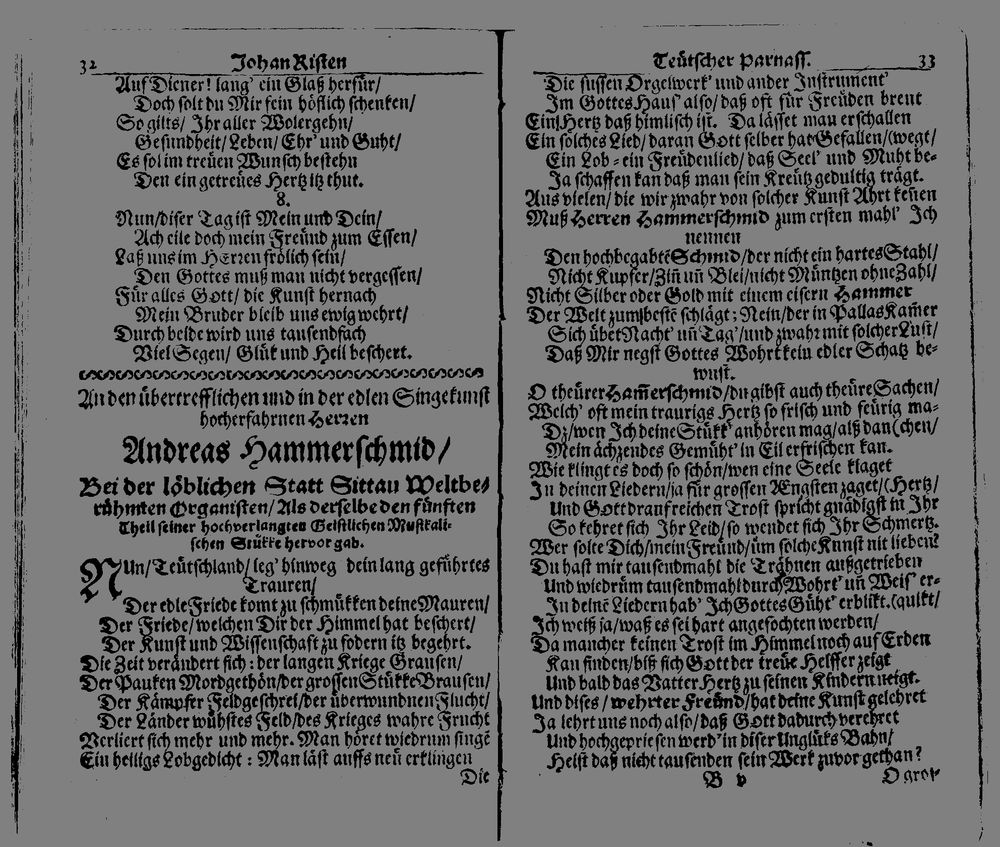 32 Johan Risten
Auf Diener! lang' ein Glaß herfür/
Doch solt du Mir fein höflich schenken/
So gilts/ Ihr aller Wolergehn/
Gesundheit/ Leben/ Ehr' und Guht/
Es sol im treüen Wunsch bestehn
Den ein getreües Hertz itz thut.
8.
Nun/diser Tag ist Mein und Dein/
Ach eile doch mein Freünd zum Essen/
Laß uns im Herren frölich sein/
Den Gottes muß man nicht vergessen/
Für alles Gott/ die Kunst hernach
Mein Bruder bleib uns ewig wehrt/
Durch beide wird uns tausendfach
Viel Segen/ Glük und Heil beschert.
An den übertrefflichen und in der edlen Singekunst
hocherfahrnen Herren
Andreas Hammerschmid/
Bei der löblichen Statt Sittau Weltbe-
rühmten Organisten/ Als derselbe den fünften
Theil seiner hochverlangten Geistlichen Musikali-
schen Stükke hervor gab.
NUn/Teütschland/ leg' hinweg dein lang geführtes
Trauren/
Der edle Friede komt zu schmükken deine Mauren/
Der Friede/ welchen Dir der Himmel hat beschert/
Der Kunst und Wissenschaft zu fodern itz begehrt.
Die Zeit verändert sich: der langen Kriege Grausen/
Der Pauken Mordgethön/der grossen Stükke Brausen/
Der Kämpfer Feldgeschrei/der überwundnen Flucht/
Der Länder wühstes Feld/des Krieges wahre Frucht
Verliert sich mehr und mehr. Man höret wiedrum singē
Ein heiligs Lobgedicht: Man läst auffs neü erklingen
Die
Teütscher Parnass. 33
Die süssen Orgelwerk' und ander Instrument'
Im Gottes Haus' also/ daß oft für Freüden brent
Ein Hertz daß himlisch ist. Da lässet man erschallen
Ein solches Lied/ daran Gott selber hat Gefallen/(wegt/
Ein Lob-ein Freüdenlied/ daß Seel' und Muht be-
Ja schaffen kan daß man sein Kreütz gedultig trägt.
Aus vielen/ die wir zwahr von solcher Kunst Ahrt keñen
Muß Herren Hammerschmid zum ersten mahl' Ich
nennen
Den hochbegabtē Schmid/der nicht ein hartes Stahl/
Nicht Kupfer/Ziñ uñ Blei/nicht Müntzen ohne Zahl/
Nicht Silber oder Gold mit einem eisern Hammer
Der Welt zum bestē schlägt; Nein/der in Pallas Kam̄er
Sich übet Nacht' uñ Tag'/und zwahr mit solcher Lust/
Daß Mir negst Gottes Wohrt kein edler Schatz be-
wust.
O theürer Ham̄erschmid/du gibst auch theüre Sachen/
Welch' oft mein traurigs Hertz so frisch und feürig ma-
Dz/wen Ich deine Stükk' anhören mag/alß dan(chen/
Mein ächzendes Gemüht' in Eil erfrischen kan.
Wie klingt es doch so schön/wen eine Seele klaget
In deinen Liedern/ja für grossen Ængsten zaget/(Hertz/
Und Gott drauf reichen Trost spricht gnädigst in Ihr
So kehret sich Ihr Leid/so wendet sich Ihr Schmertz.
Wer solte Dich/mein Freünd/üm solche Kunst nit lieben?
Du hast mir tausendmahl die Trähnen außgetrieben
Und wiedrüm tausendmahl durch Wohrt' uñ Weis' er-
In deinē Liedern hab' Ich Gottes Güht' erblikt.(quikt/
Ich weiß ja/waß es sei hart angefochten werden/
Da mancher keinen Trost im Himmel noch auf Erden
Kan finden/biß sich Gott der treüe Helffer zeigt
Und bald das Vatter Hertz zu seinen Kindern neigt.
Und dises/ wehrter Freünd/hat deine Kunst gelehret
Ja lehrt uns noch also/daß Gott dadurch verehret
Und hochgepriesen werd' in diser Unglüks Bahn/
Heist daß nicht tausenden sein Werk zuvor gethan?
B v O gros